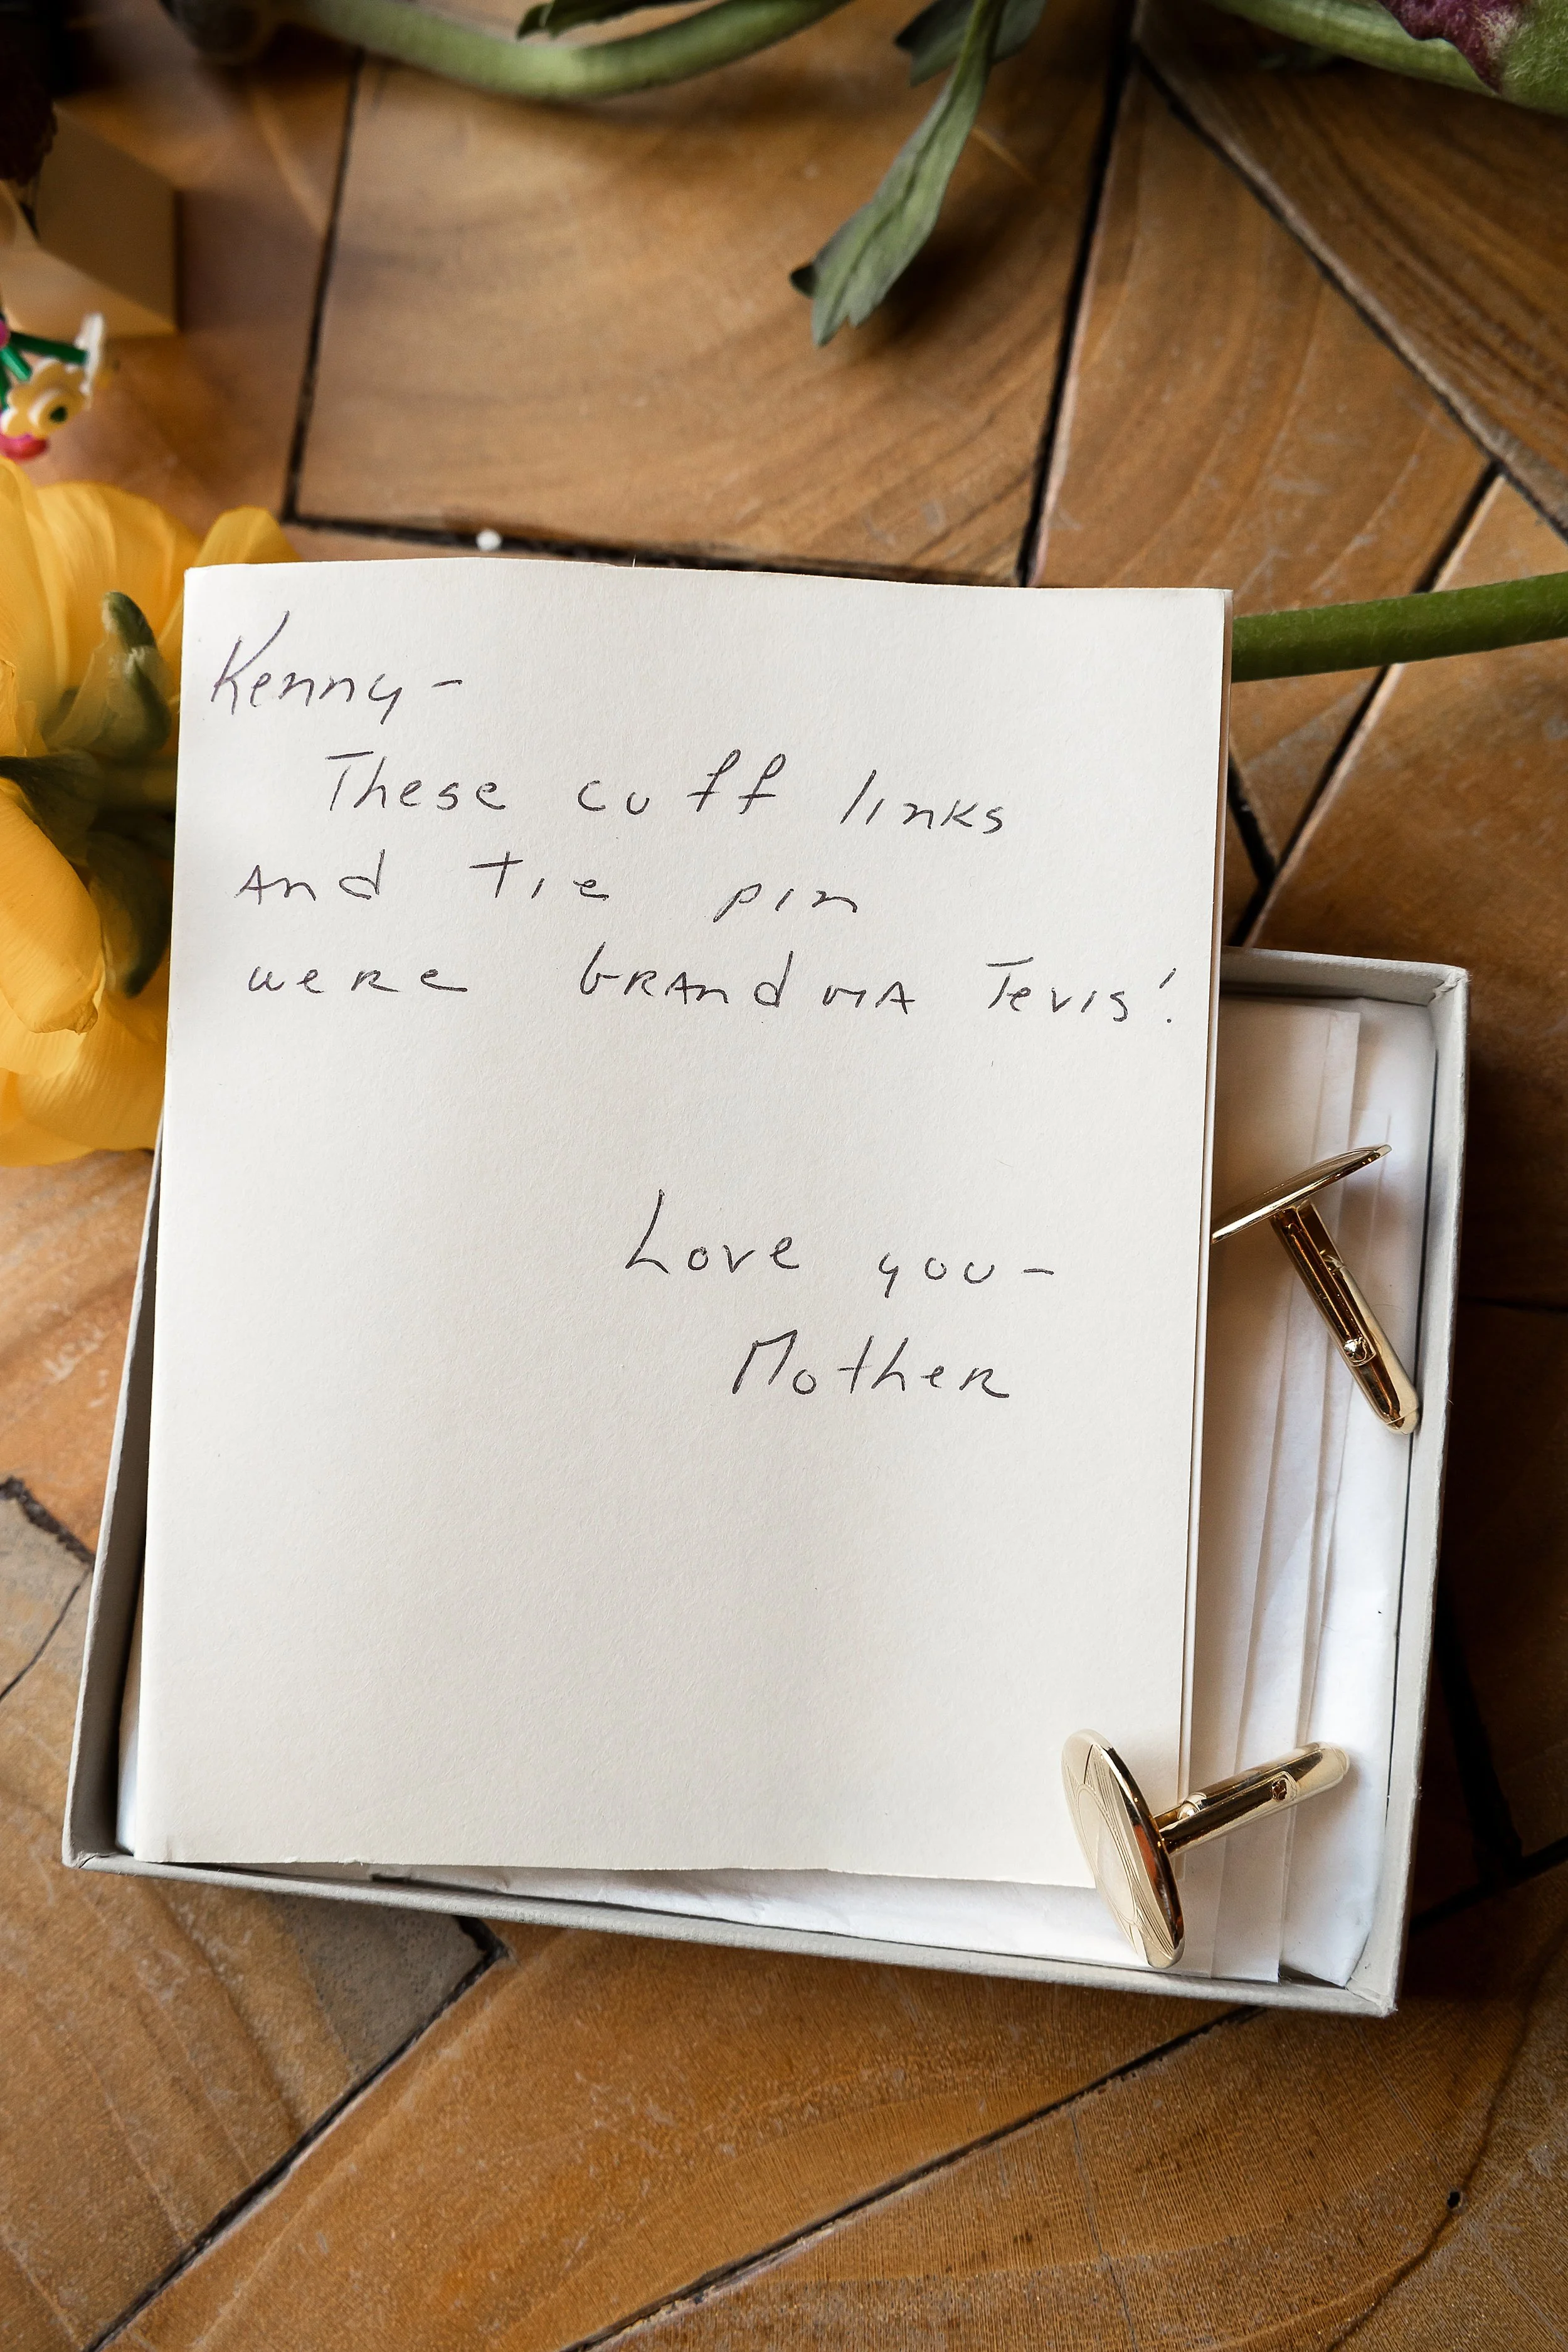 Kenny-
These cuff links
And tie pin
were GRAndmA Tevis'.
Love you-
Mother